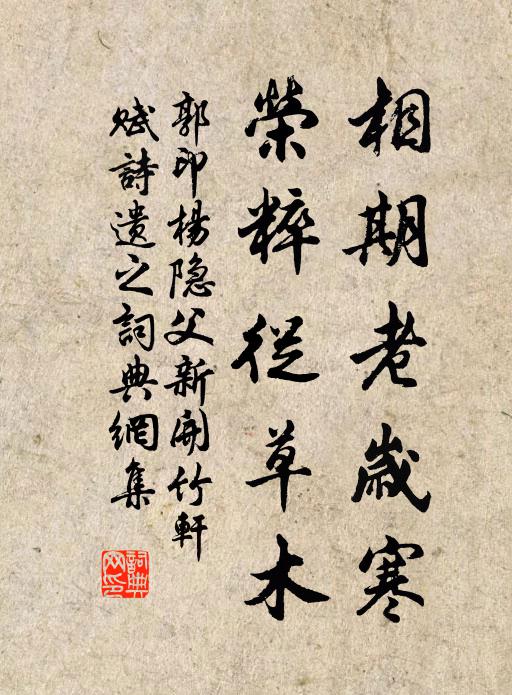 相期老歲寒
榮粹從草木
郭印楊隐父新開竹軒
賦詩遺之詞典網集
詞典网印